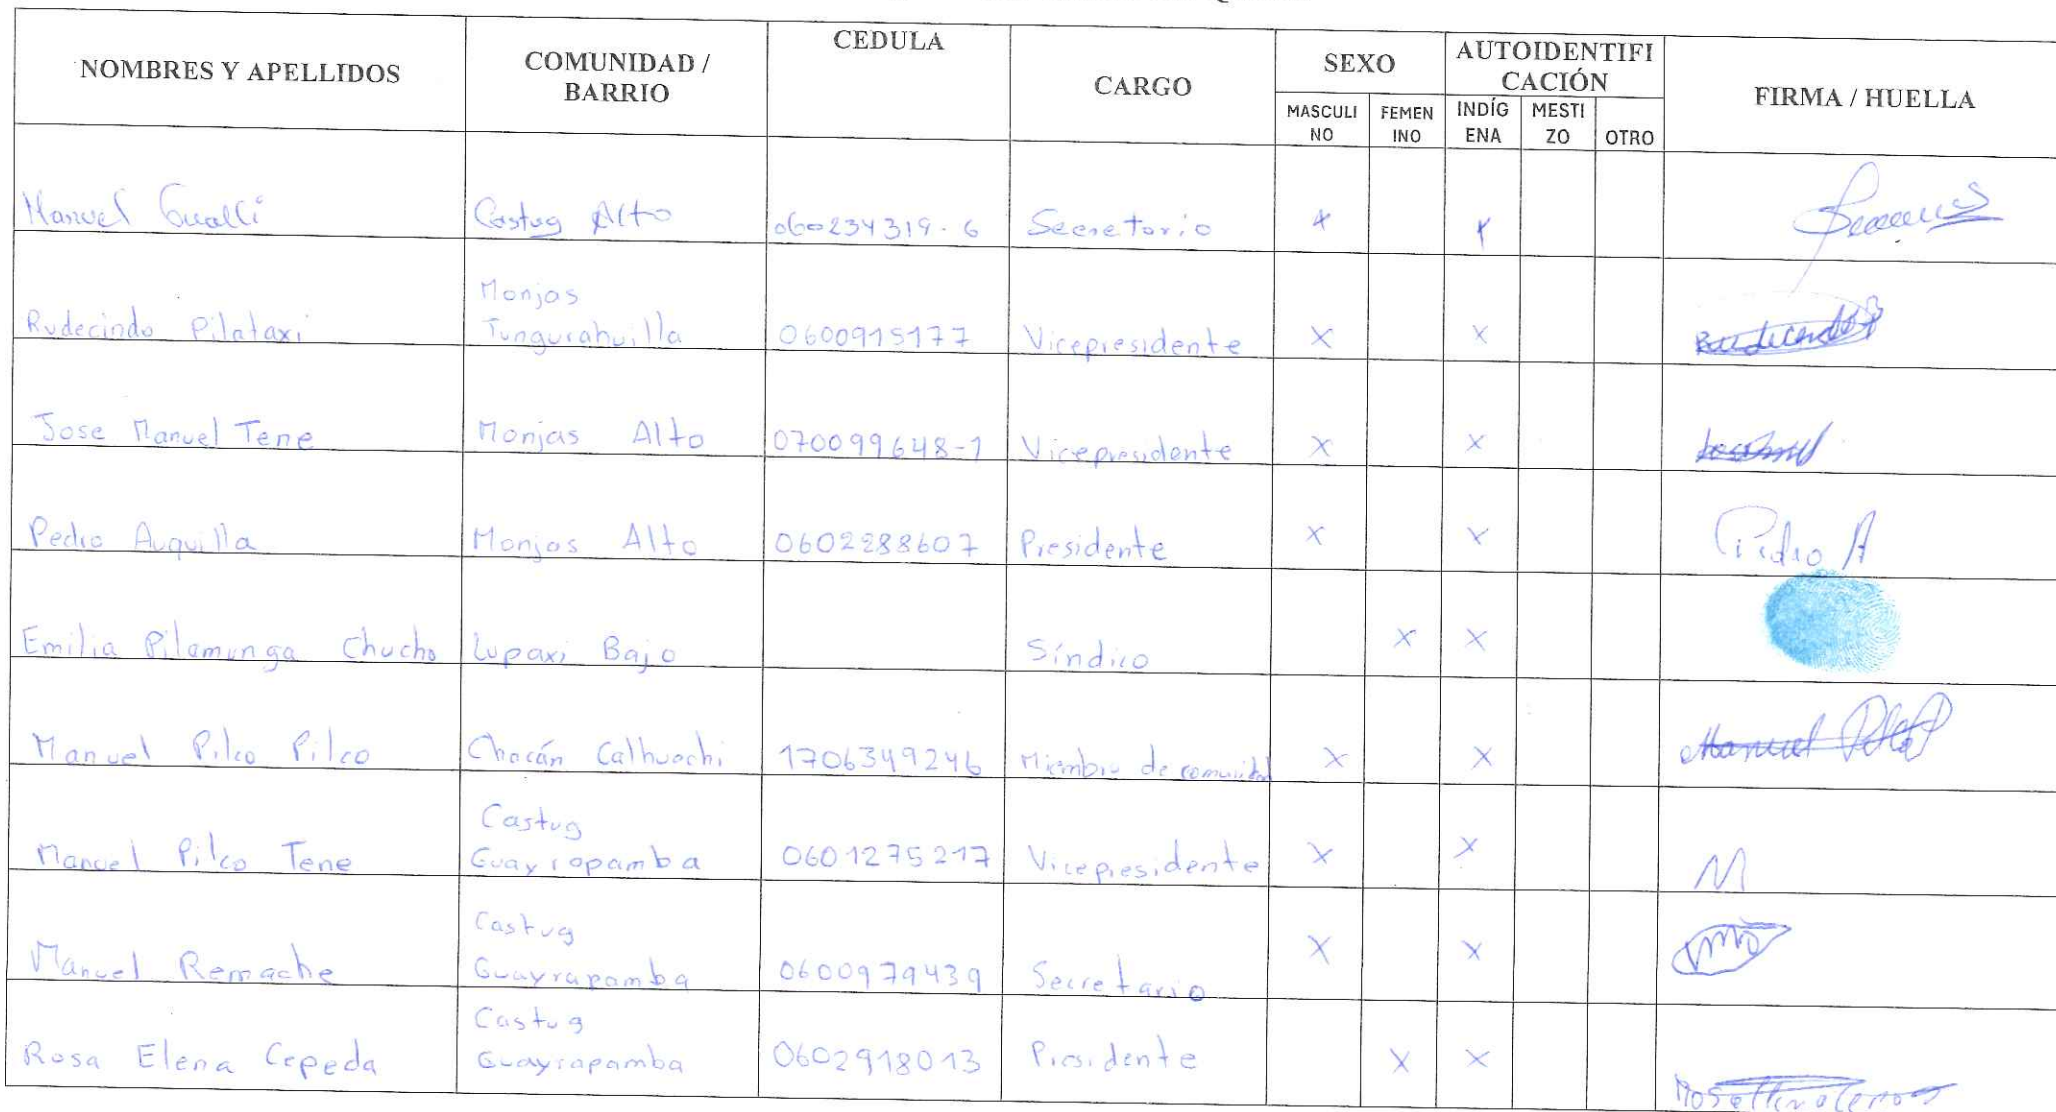 NOMBRES Y APELLIDOS COMUNIDAD / BARRIO CEDULA CARGO SEXO AUTOIDENTIFI CACIÓN FIRMA / HUELLA
MASCULI NO FEMEN INO INDÍG ENA MESTI ZO OTRO
Manuel Gualli Castug Alto 060234319-6 Secretario x x
Rudecindo Pilataxi Monjas Tungurahuilla 0600915177 Vicepresidente X X
Jose Manuel Tene Monjas Alto 070099648-1 Vicepresidente X X
Pedro Auquilla Monjas Alto 0602288607 Presidente X X Pedro A
Emilia Pilamunga Chucho Lupaxi Bajo Síndico X X
Manuel Pilco Pilco Chacán Calhuachi 1706349246 Miembro de comunidad X X Manuel
Manuel Pilco Tene Castug Guayrapamba 0601275217 Vicepresidente X X M
Manuel Remache Castug Guayrapamba 0600979439 Secretario X X
Rosa Elena Cepeda Castug Guayrapamba 0602918013 Presidente X X